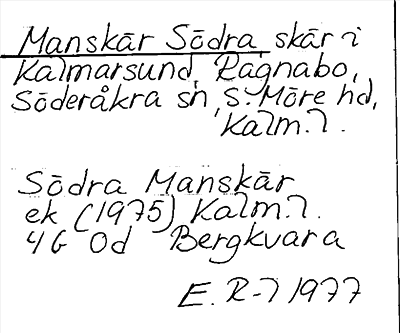 Manskär Södra, skär i
Kalmarsund, Ragnabo,
Söderåkra sn, S. Möre hd,
Kalm. l.
Södra Manskär
ek (1975) Kalm. l.
4G 0d Bergkvara
E. R-l 1977